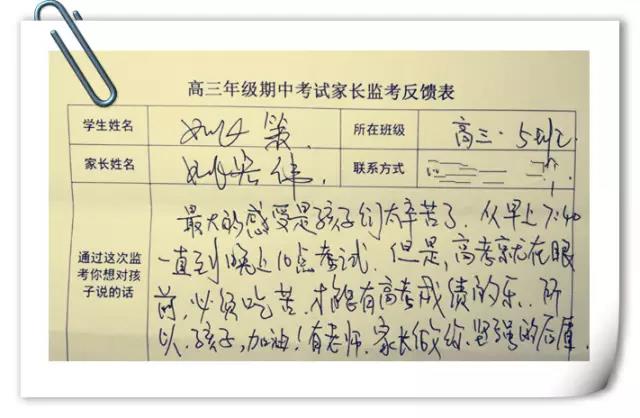 高三年级期中考试家长监考反馈表
学生姓名 刘 所在班级 高三·5班
家长姓名 刘 伟 联系方式
最大的感受是孩子们太辛苦了。从早上7:40
一直到晚上10点考试。但是,高考就在眼
通过这次监考你想对孩子说的话
前,必须吃苦,才能有高考成绩的乐。所
以,孩子,加油!有老师、家长做你坚强的后盾。